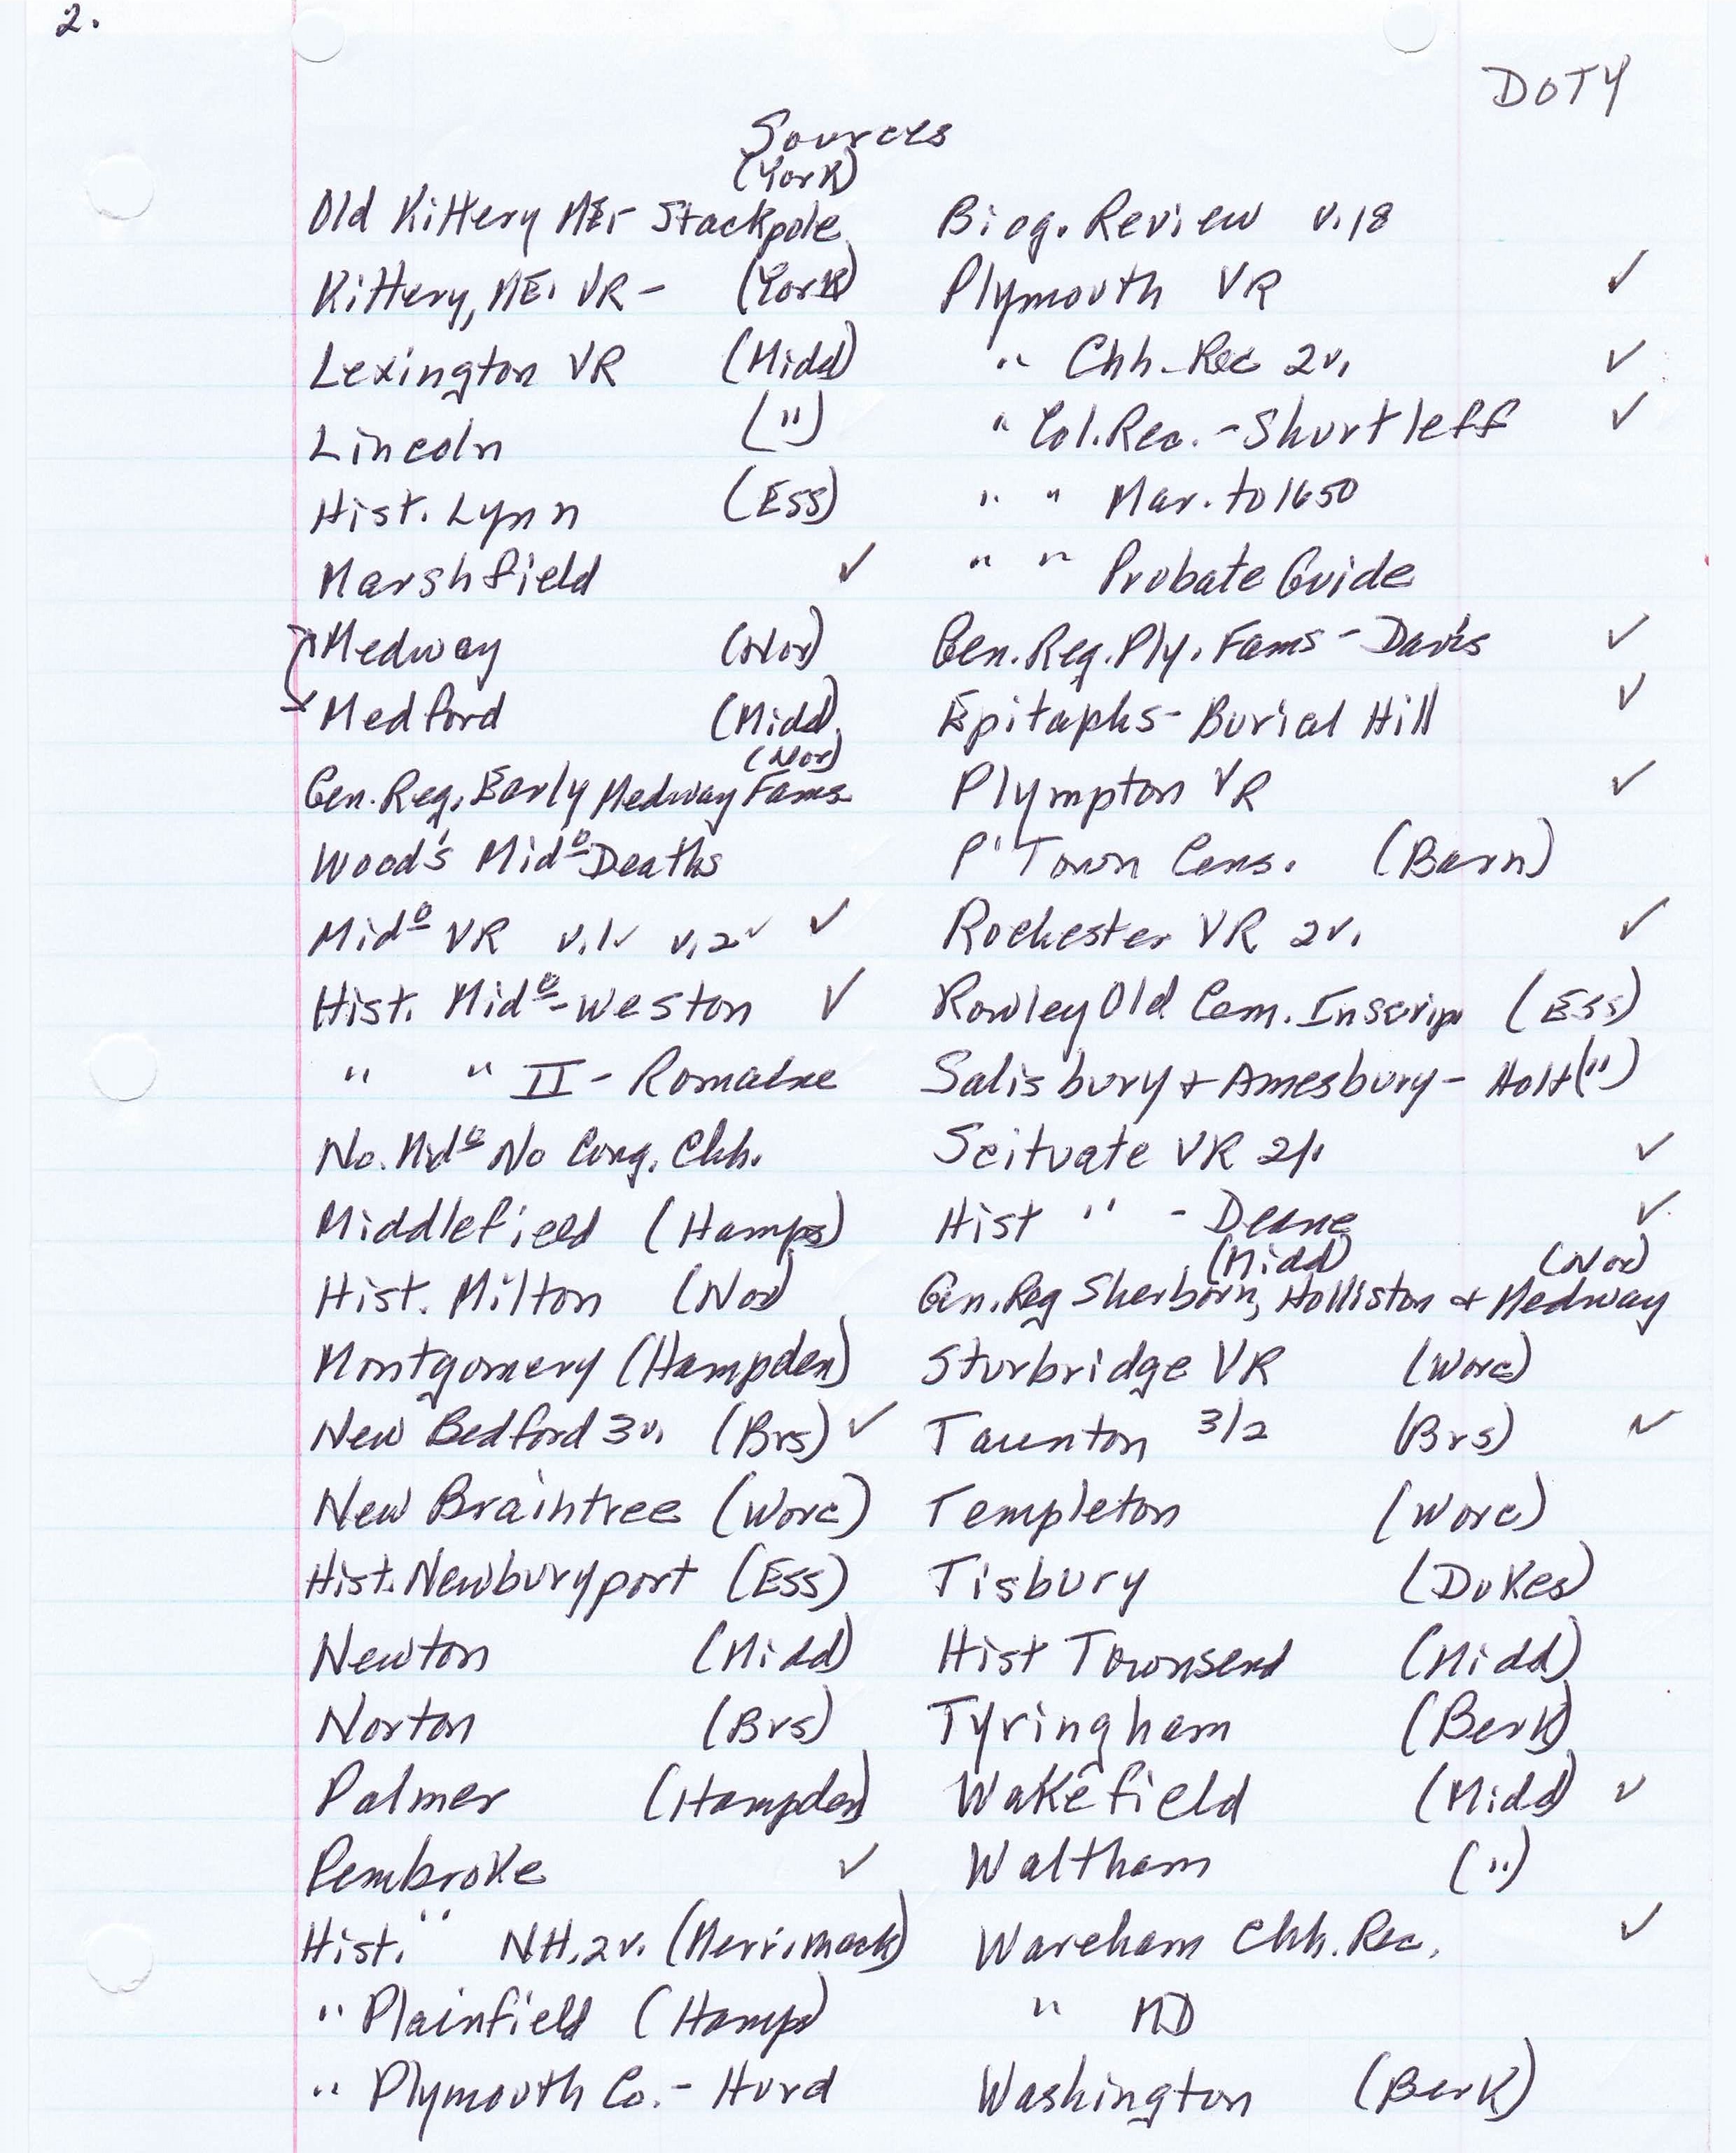 2.
DOTY
Sources
(York)
Old Kittery ME, - Stackpole
Kittery, ME. VR - (York)
Lexington VR (Midd)
Lincoln (")
Hist. Lynn (Ess)
Marshfield ✓
Medway (Nor)
Medford (Midd)
(Nor)
Gen. Reg. Early Medway Fams
Wood's Midᵒ Deaths
Midᵒ VR v.1✓ v.2✓ ✓
Hist. Midᵒ - Weston ✓
" " II - Romaine
No. Midᵒ No Cong. Chh.
Middlefield (Hamps)
Hist. Milton (Nor)
Montgomery (Hampden)
New Bedford 3v. (Brs) ✓
New Braintree (Worc)
Hist. Newburyport (Ess)
Newton (Midd)
Norton (Brs)
Palmer (Hampden)
Pembroke ✓
Hist. " NH. 2v. (Merrimack)
" Plainfield (Hamps)
" Plymouth Co. - Hurd
Biog. Review v.18
Plymouth VR ✓
" Chh. Rec 2v. ✓
" Col. Rec. - Shurtleff ✓
" " Mar. to 1650
" " Probate Guide
Gen. Reg. Ply. Fams - Davis ✓
Epitaphs - Burial Hill ✓
Plympton VR ✓
P'Town Cens. (Barn)
Rochester VR 2v. ✓
Rowley Old Cem. Inscrip (Ess)
Salisbury + Amesbury - Hoyt (")
Scituate VR 2v. ✓
Hist " - Deane ✓
(Midd) (Nor)
Gen. Reg Sherborn, Holliston + Medway
Sturbridge VR (Worc)
Taunton 3/2 (Brs) ✓
Templeton (Worc)
Tisbury (Dukes)
Hist Townsend (Midd)
Tyringham (Berk)
Wakefield (Midd) ✓
Waltham (")
Wareham Chh. Rec. ✓
" MD
Washington (Berk)